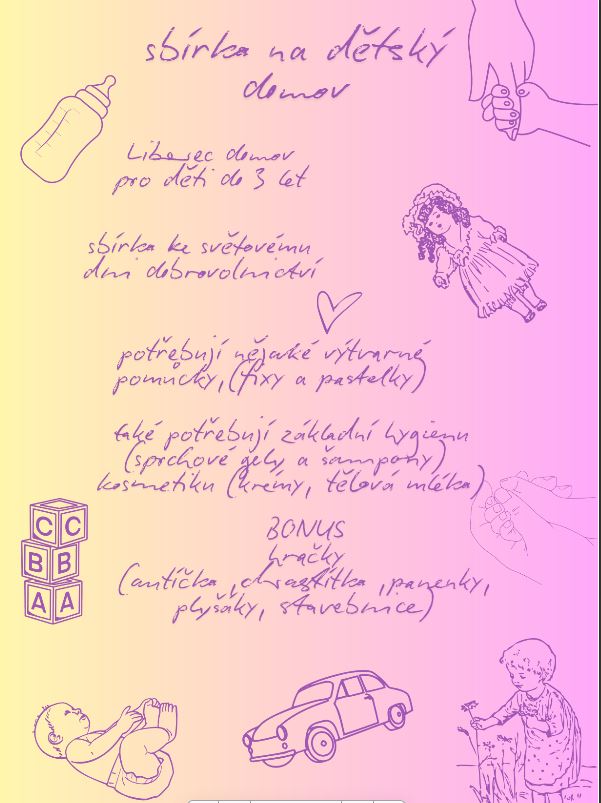 sbírka na dětský
domov
Liberec domov
pro děti do 3 let
sbírka ke světovému
dni dobrovolnictví
potřebují nějaké výtvarné
pomůcky, (fixy a pastelky)
také potřebují základní hygienu
(sprchové gely a šampony)
kosmetiku (krémy, tělová mléka)
BONUS
hračky
(autíčka, chrastítka, panenky,
plyšáky, stavebnice)
C C
B B
A A